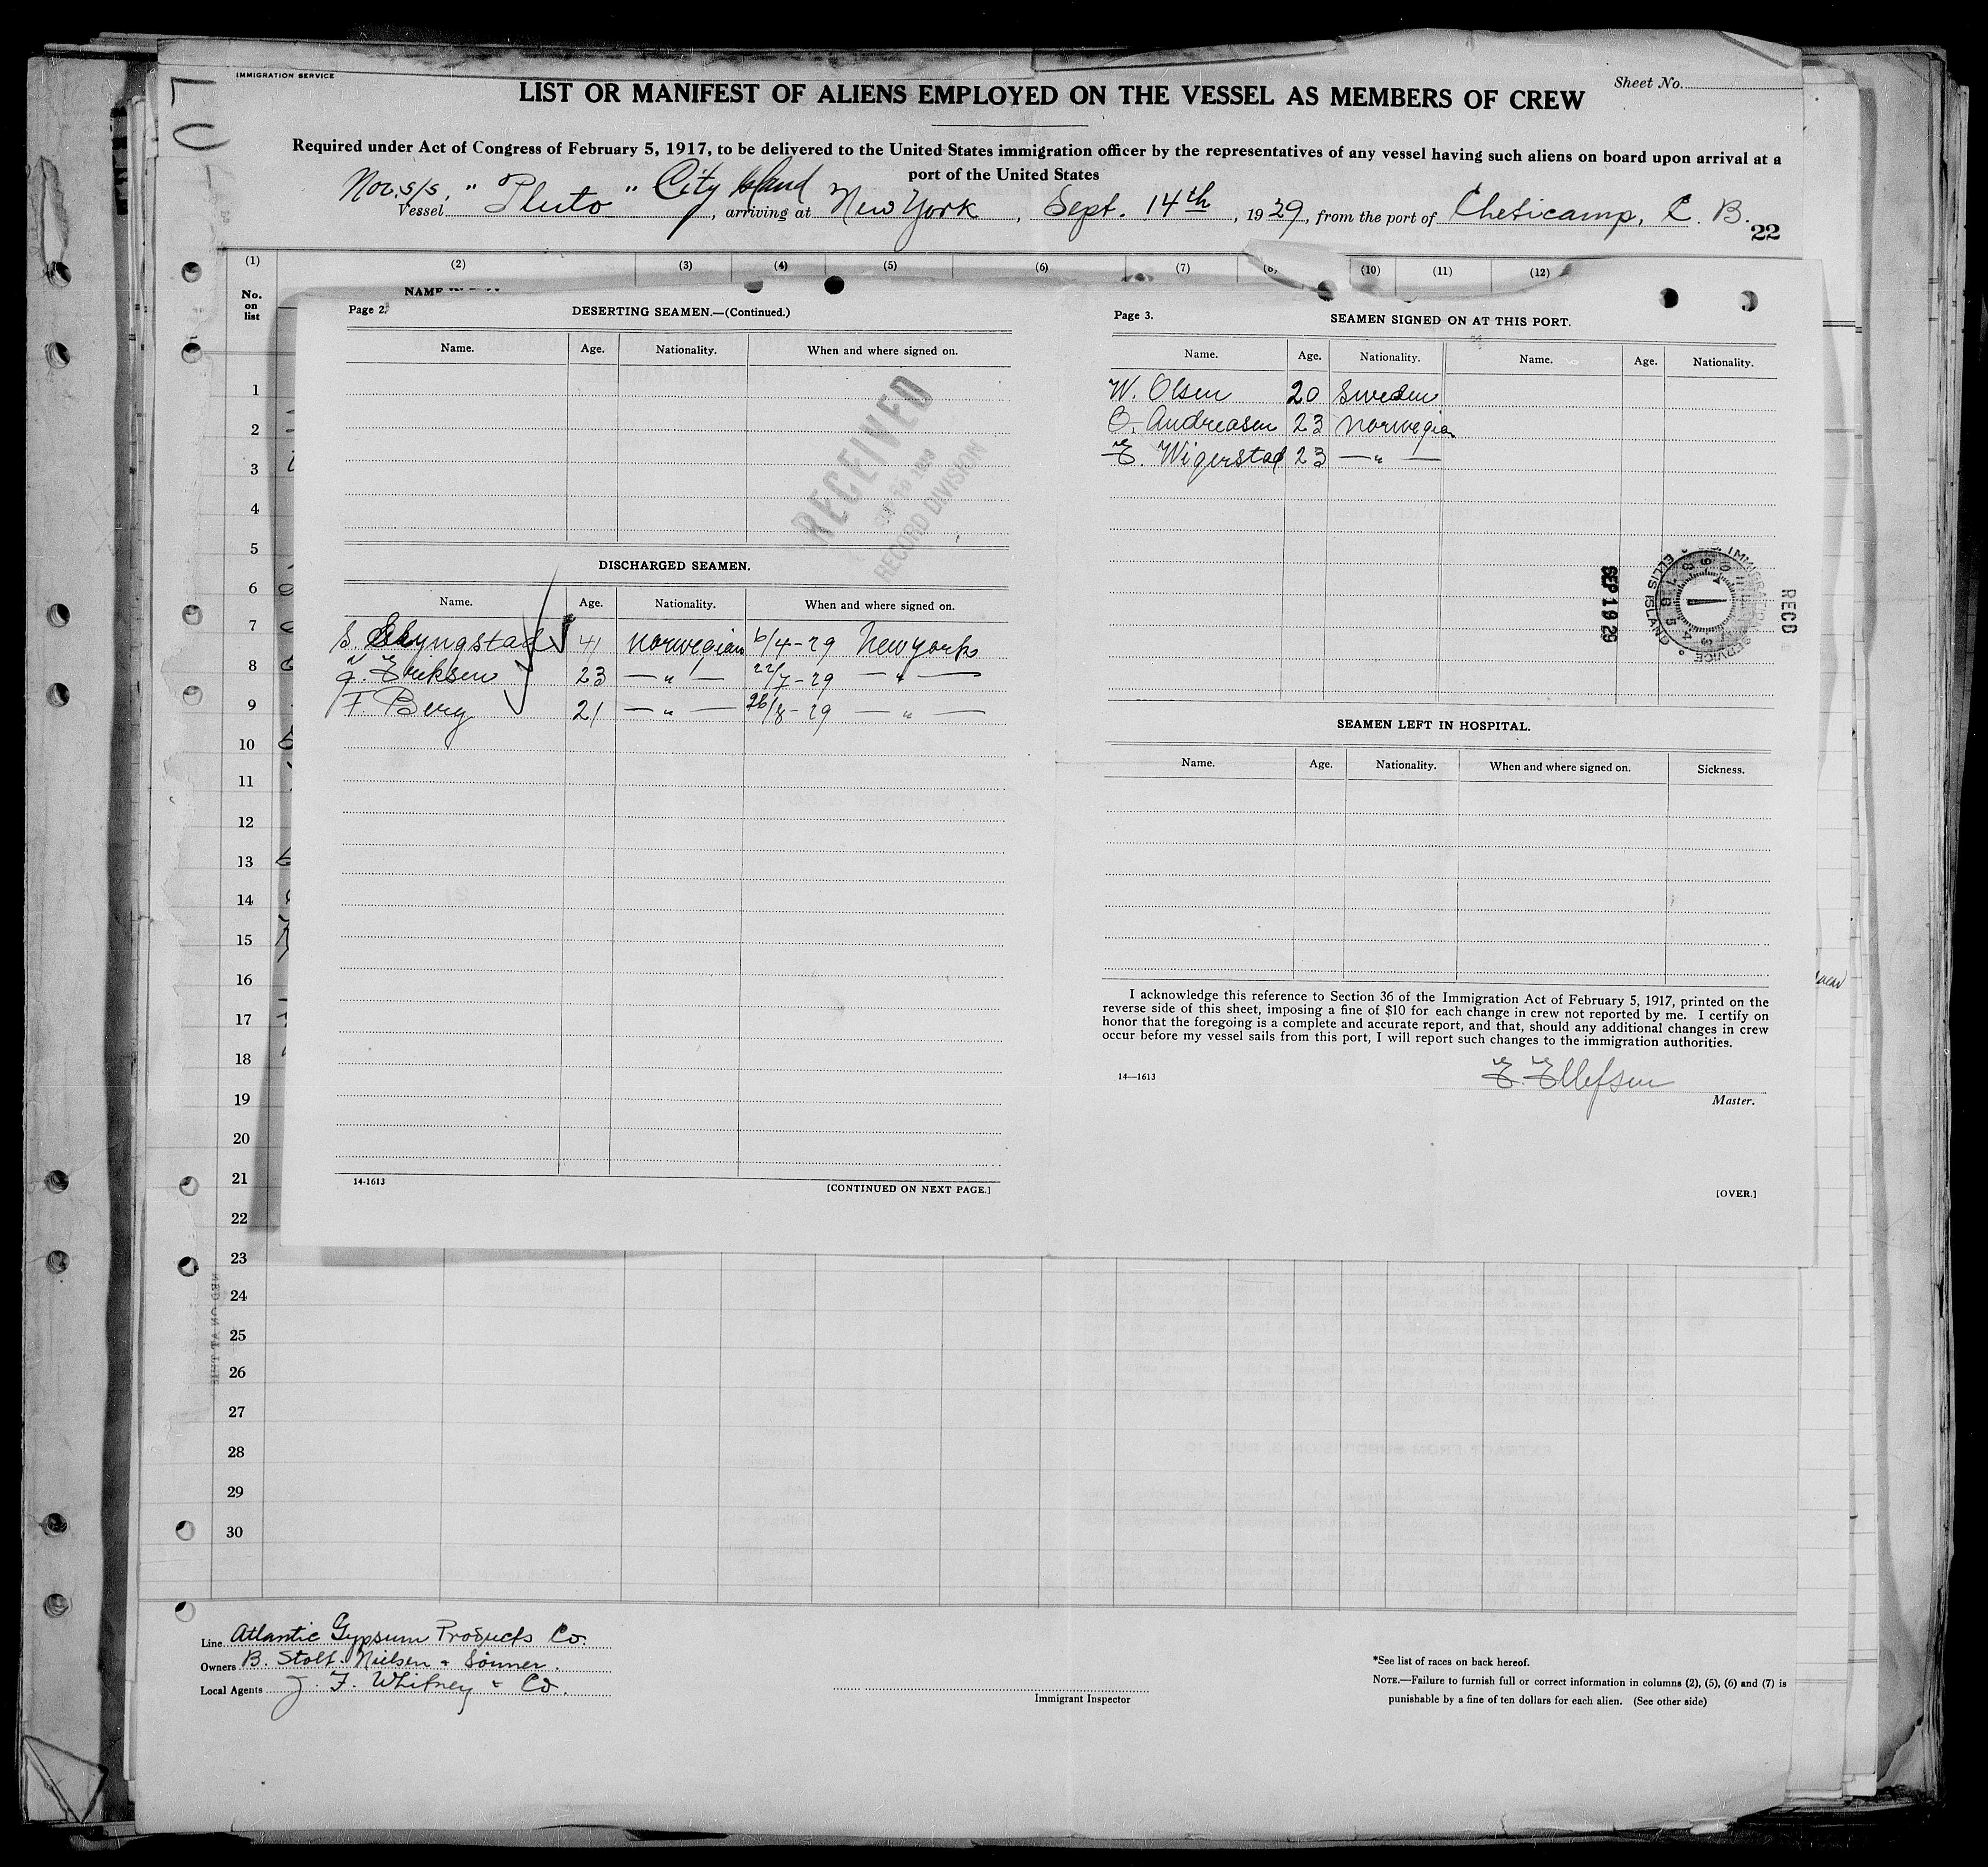 IMMIGRATION SERVICE
Sheet No.
LIST OR MANIFEST OF ALIENS EMPLOYED ON THE VESSEL AS MEMBERS OF CREW
Required under Act of Congress of February 5, 1917, to be delivered to the United States immigration officer by the representatives of any vessel having such aliens on board upon arrival at a
port of the United States
Nor. s/s. City Island
Vessel "Pluto", arriving at New York, Sept. 14th, 1929, from the port of Cheticamp, C. B.
22
(1) (2) (3) (4) (5) (6) (7) (10) (11) (12)
No. on list
Page 2.
DESERTING SEAMEN.—(Continued.)
Name. Age. Nationality. When and where signed on.
RECEIVED
RECORD DIVISION
DISCHARGED SEAMEN.
Name. Age. Nationality. When and where signed on.
41 Norwegian 6/4-29 New York
Eriksen 23 — " — 22/7-29 — " —
F. Berg 21 — " — 26/8-29 — " —
14-1613
[CONTINUED ON NEXT PAGE.]
Page 3.
SEAMEN SIGNED ON AT THIS PORT.
Name. Age. Nationality. Name. Age. Nationality.
W. Olsen 20 Sweden
O. Andreasen 23 Norwegian
E. Wigerstad 23 — " —
SEP 19 29
IMMIGRATION SERVICE ELLIS ISLAND
RECD
SEAMEN LEFT IN HOSPITAL.
Name. Age. Nationality. When and where signed on. Sickness.
I acknowledge this reference to Section 36 of the Immigration Act of February 5, 1917, printed on the
reverse side of this sheet, imposing a fine of $10 for each change in crew not reported by me. I certify on
honor that the foregoing is a complete and accurate report, and that, should any additional changes in crew
occur before my vessel sails from this port, I will report such changes to the immigration authorities.
14—1613
E. Ellefsen
Master.
[OVER.]
1
2
3
4
5
6
7
8
9
10
11
12
13
14
15
16
17
18
19
20
21
22
23
24
25
26
27
28
29
30
Line Atlantic Gypsum Products Co.
Owners B. Stolt-Nielsen & Sønner.
Local Agents J. F. Whitney & Co.
Immigrant Inspector
*See list of races on back hereof.
NOTE.—Failure to furnish full or correct information in columns (2), (5), (6) and (7) is
punishable by a fine of ten dollars for each alien. (See other side)